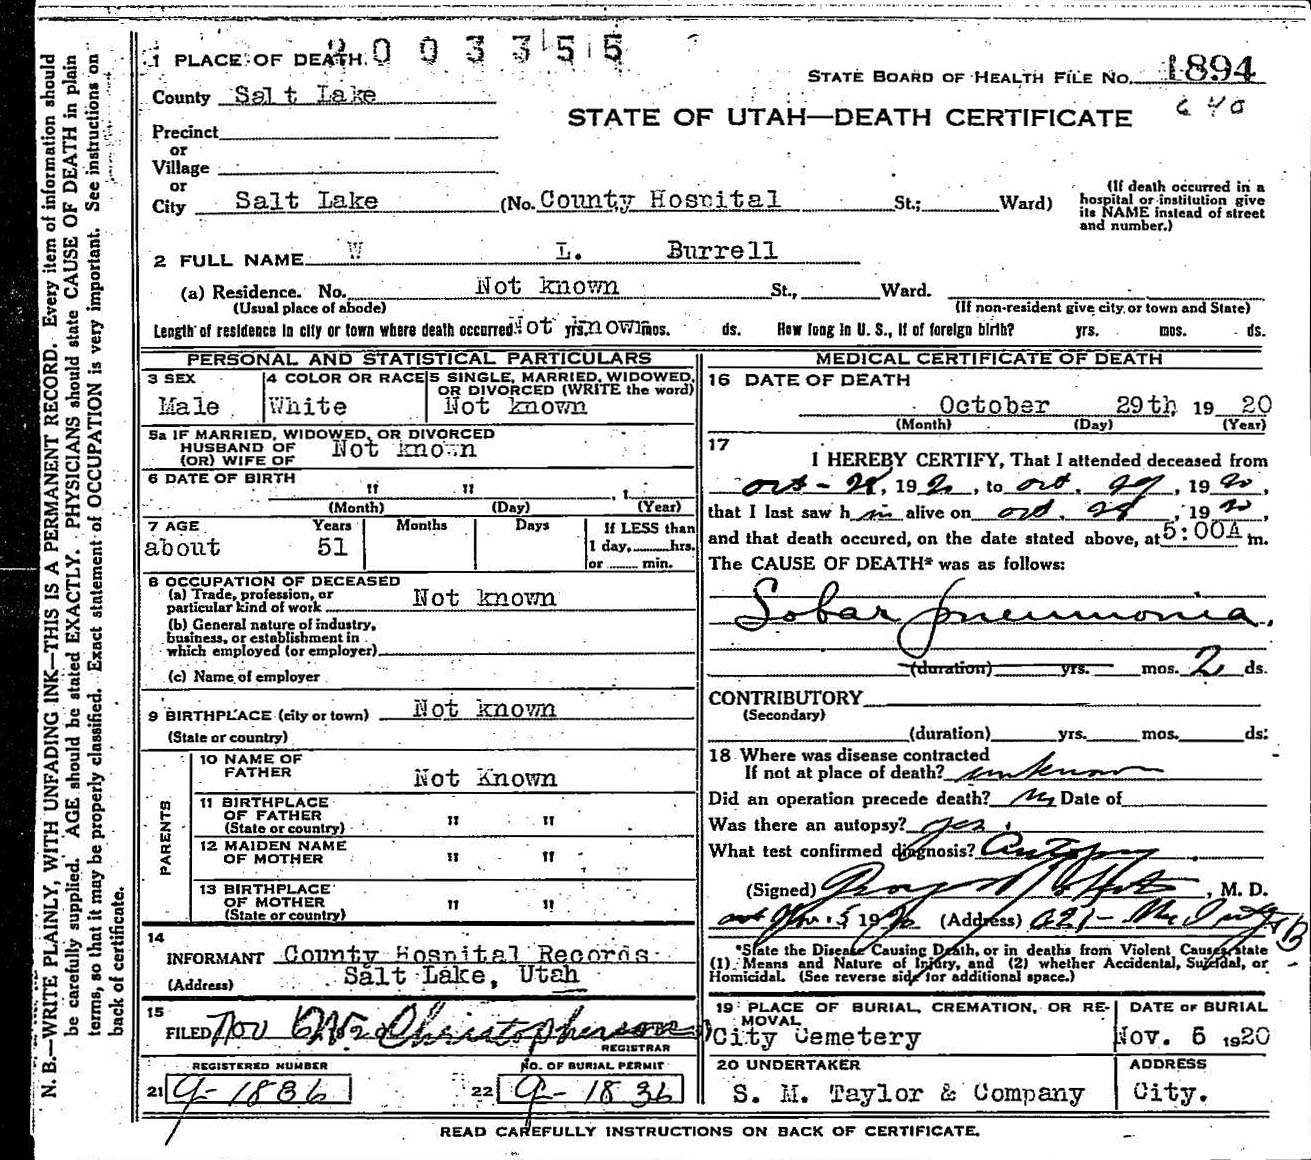 2003355
1 PLACE OF DEATH
STATE BOARD OF HEALTH FILE No. 1894
County Salt Lake
640
STATE OF UTAH—DEATH CERTIFICATE
Precinct
or
Village
or
City Salt Lake (No. County Hospital St.; Ward)
(If death occurred in a hospital or institution give its NAME instead of street and number.)
2 FULL NAME W L. Burrell
(a) Residence. No. Not known St., Ward.
(Usual place of abode) (If non-resident give city or town and State)
Length of residence in city or town where death occurred Not known yrs. mos. ds. How long in U. S., if of foreign birth? yrs. mos. ds.
PERSONAL AND STATISTICAL PARTICULARS
3 SEX
Male
4 COLOR OR RACE
White
5 SINGLE, MARRIED, WIDOWED, OR DIVORCED (WRITE the word)
Not known
5a IF MARRIED, WIDOWED, OR DIVORCED
HUSBAND OF
(OR) WIFE OF
Not known
6 DATE OF BIRTH " "
(Month) (Day) (Year)
7 AGE Years Months Days If LESS than
about 51 1 day, hrs.
or min.
8 OCCUPATION OF DECEASED
(a) Trade, profession, or
particular kind of work Not known
(b) General nature of industry,
business, or establishment in
which employed (or employer)
(c) Name of employer
9 BIRTHPLACE (city or town) Not known
(State or country)
PARENTS
10 NAME OF
FATHER Not Known
11 BIRTHPLACE
OF FATHER " "
(State or country)
12 MAIDEN NAME
OF MOTHER " "
13 BIRTHPLACE
OF MOTHER " "
(State or country)
14
INFORMANT County Hospital Records
(Address) Salt Lake, Utah
15
FILED Nov 6 1920 Christopherson
REGISTRAR
REGISTERED NUMBER NO. OF BURIAL PERMIT
21 9-1836 22 9-1836
MEDICAL CERTIFICATE OF DEATH
16 DATE OF DEATH
October 29th 19 20
(Month) (Day) (Year)
17
I HEREBY CERTIFY, That I attended deceased from
Oct - 28, 1920, to Oct. 29, 1920,
that I last saw him alive on Oct. 28, 1920,
and that death occured, on the date stated above, at 5:00A m.
The CAUSE OF DEATH* was as follows:
Lobar pneumonia.
(duration) yrs. mos. 2 ds.
CONTRIBUTORY
(Secondary)
(duration) yrs. mos. ds.
18 Where was disease contracted
If not at place of death? unknown
Did an operation precede death? No Date of
Was there an autopsy? yes.
What test confirmed diagnosis? Autopsy
(Signed) , M. D.
Nov. 5 1920 (Address)
*State the Disease Causing Death, or in deaths from Violent Causes, state
(1) Means and Nature of Injury, and (2) whether Accidental, Suicidal, or
Homicidal. (See reverse side for additional space.)
19 PLACE OF BURIAL, CREMATION, OR REMOVAL
City Cemetery
DATE OF BURIAL
Nov. 6 1920
20 UNDERTAKER
S. M. Taylor & Company
ADDRESS
City.
READ CAREFULLY INSTRUCTIONS ON BACK OF CERTIFICATE.
N. B.—WRITE PLAINLY, WITH UNFADING INK—THIS IS A PERMANENT RECORD. Every item of information should
be carefully supplied. AGE should be stated EXACTLY. PHYSICIANS should state CAUSE OF DEATH in plain
terms, so that it may be properly classified. Exact statement of OCCUPATION is very important. See instructions on
back of certificate.